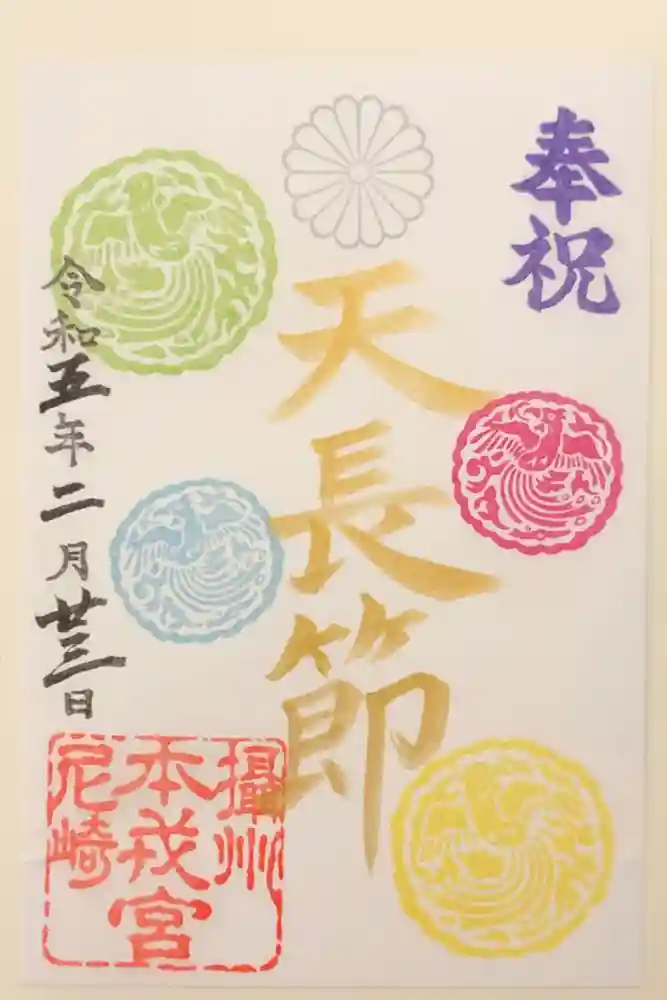 奉祝
天長節
令和五年二月廿三日
攝州
本戎宮
尼崎